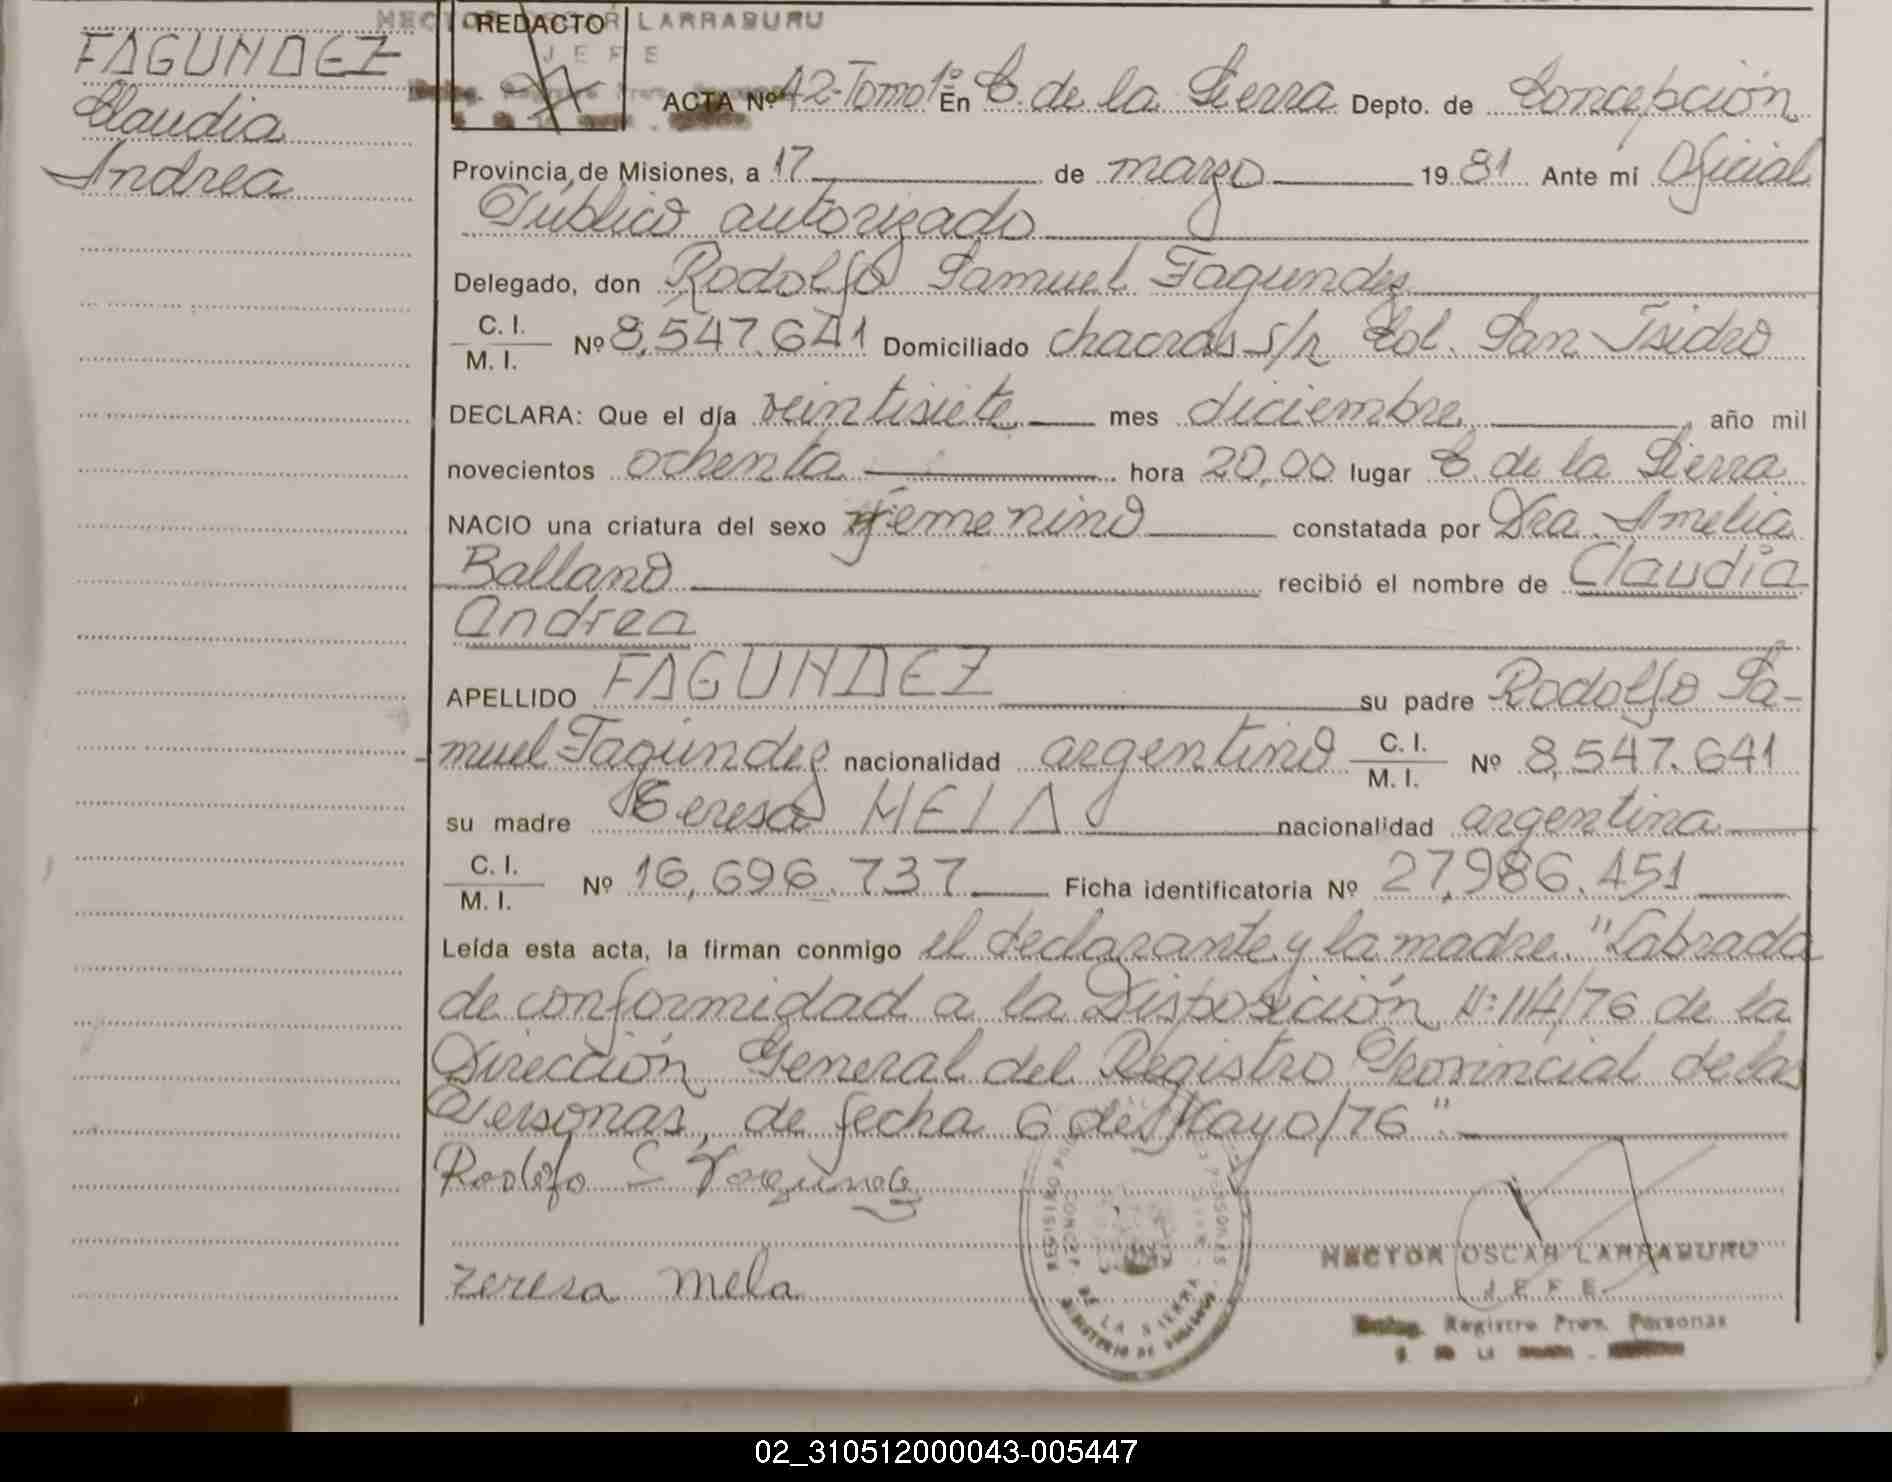 FAGUNDEZ
Claudia
Andrea
HECTOR OSCAR LARRABURU
REDACTO
JEFE
ACTA Nº 42-Tomo 1º En C. de la Sierra Depto. de Concepción
Provincia de Misiones, a 17 de marzo 1981 Ante mí Oficial
Público autorizado
Delegado, don Rodolfo Samuel Fagundez
C. I.
M. I. Nº 8,547.641 Domiciliado chacras s/n Col. San Isidro
DECLARA: Que el día veintisiete mes diciembre, año mil
novecientos ochenta hora 20,00 lugar C. de la Sierra
NACIO una criatura del sexo femenino constatada por Dra. Amelia
Balland recibió el nombre de Claudia
Andrea
APELLIDO FAGUNDEZ su padre Rodolfo Sa-
-muel Fagundez nacionalidad argentino C. I.
M. I. Nº 8,547.641
su madre Teresa MELA nacionalidad argentina
C. I.
M. I. Nº 16,696.737 Ficha identificatoria Nº 27,986.451
Leída esta acta, la firman conmigo el declarante y la madre. "Labrada
de conformidad a la Disposición Nº 114/76 de la
Dirección General del Registro Provincial de las
Personas, de fecha 6 de Mayo/76".
Rodolfo S Fagundez
teresa mela
HECTOR OSCAR LARRABURU
JEFE
Deleg. Registro Prov. Personas
DE LA SIERRA
02_310512000043-005447